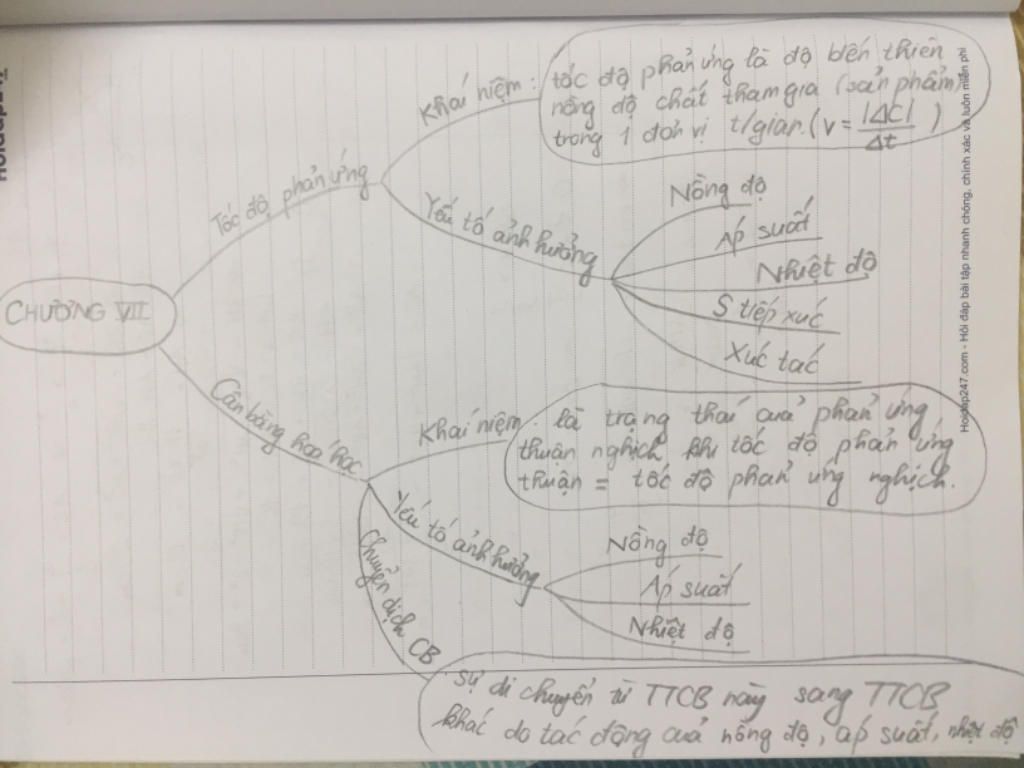 CHƯƠNG VII
Tốc độ phản ứng
Khái niệm:
tốc độ phản ứng là độ biến thiên
nồng độ chất tham gia (sản phẩm)
trong 1 đơn vị t/gian. (v = |ΔC| / Δt)
Yếu tố ảnh hưởng
Nồng độ
Áp suất
Nhiệt độ
S tiếp xúc
Xúc tác
Cân bằng hoá học
Khái niệm:
là trạng thái của phản ứng
thuận nghịch khi tốc độ phản ứng
thuận = tốc độ phản ứng nghịch.
Yếu tố ảnh hưởng
Nồng độ
Áp suất
Nhiệt độ
Chuyển dịch CB
sự di chuyển từ TTCB này sang TTCB
khác do tác động của nồng độ, áp suất, nhiệt độ
Hoidap247.com - Hỏi đáp bài tập nhanh chóng, chính xác và luôn miễn phí